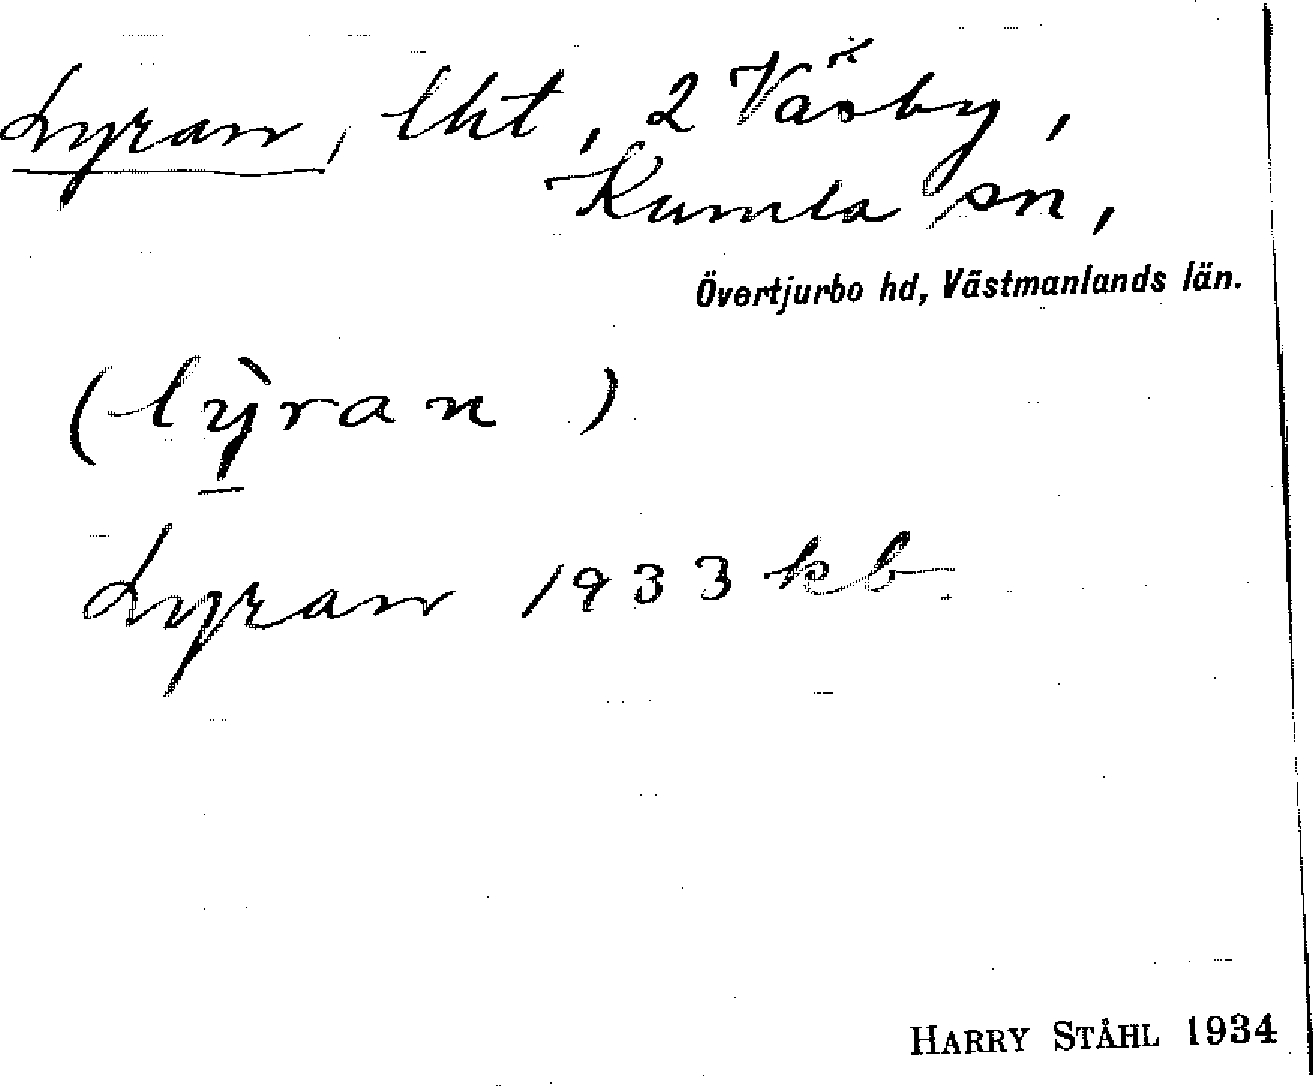 Lyran, lht, 2 Väsby,
Kumla sn,
Övertjurbo hd, Västmanlands län.
(lỳran)
Lyran 1933 kb.
HARRY STÅHL 1934